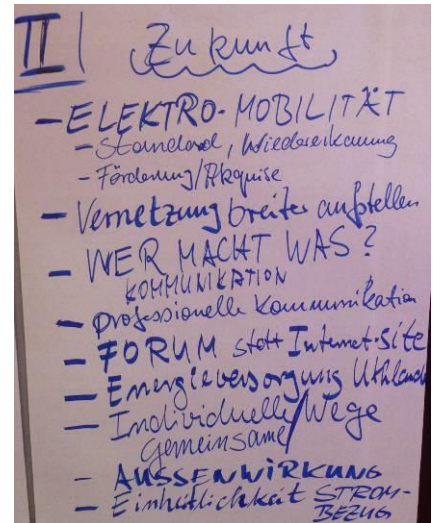 II Zukunft
- ELEKTRO-MOBILITÄT
- Standard, Wiedererkennung
- Förderung/Akquise
- Vernetzung breiter aufstellen
- WER MACHT WAS?
KOMMUNIKATION
- professionelle Kommunikation
- FORUM statt Internet-Site
- Energieversorgung Uthlande
- Individuelle/Wege
Gemeinsame/
- AUSSENWIRKUNG
- Einheitlichkeit STROM-
BEZUG